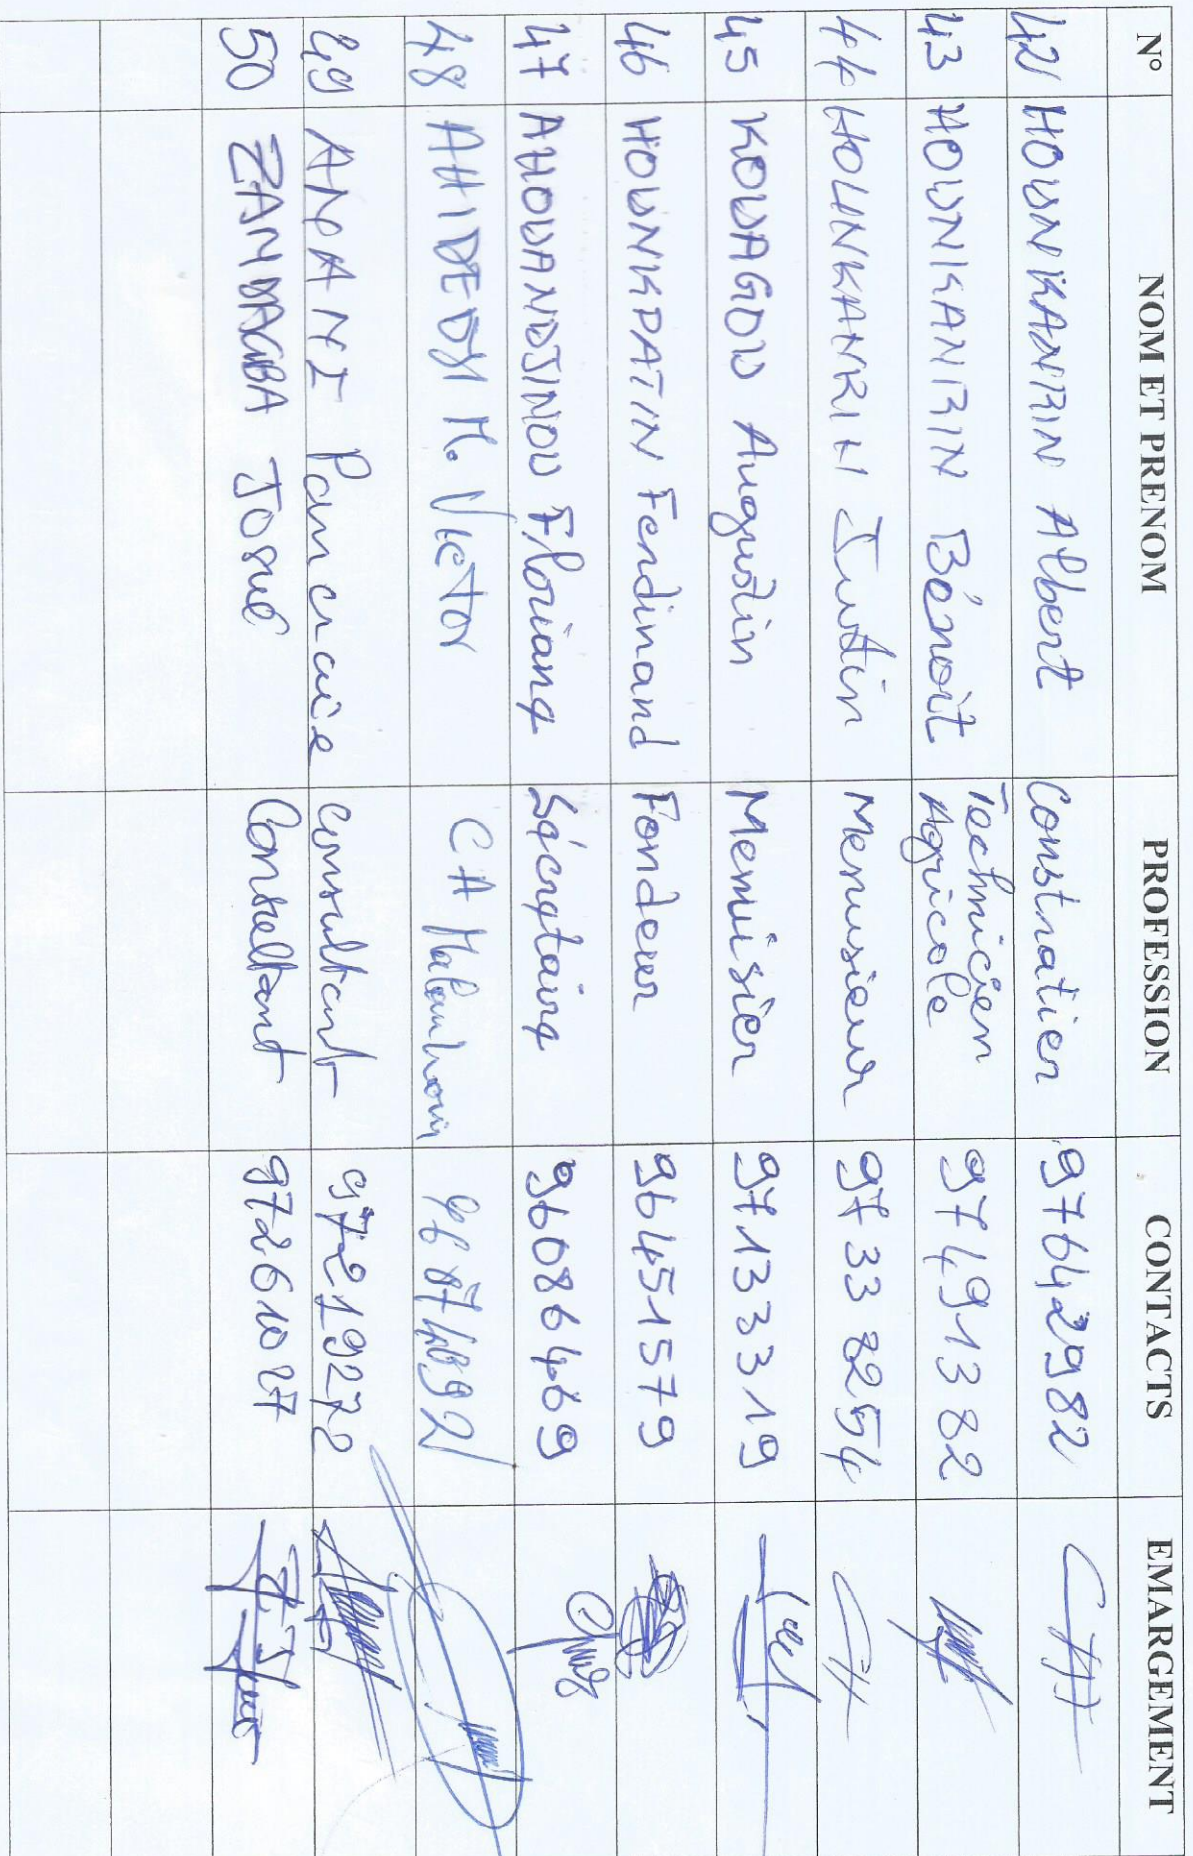 N° NOM ET PRENOM PROFESSION CONTACTS EMARGEMENT
42 HOUNKANRIN Albert Constratier 97642982
43 HOUNKANRIN Bénoit Technicien Agricole 97491382
44 HOUNKANRIN Justin Menusieur 97338254
45 KOUAGOU Augustin Memuisier 97133319
46 HOUNKPATIN Ferdinand Fondeur 96451579
47 AHOUANDJINOU Floriane Sécretaire 96086469
48 AHIDEDJI M. Victor CA
49 Pancrace Consultant 97219272
50 Josué Consultant 97261027